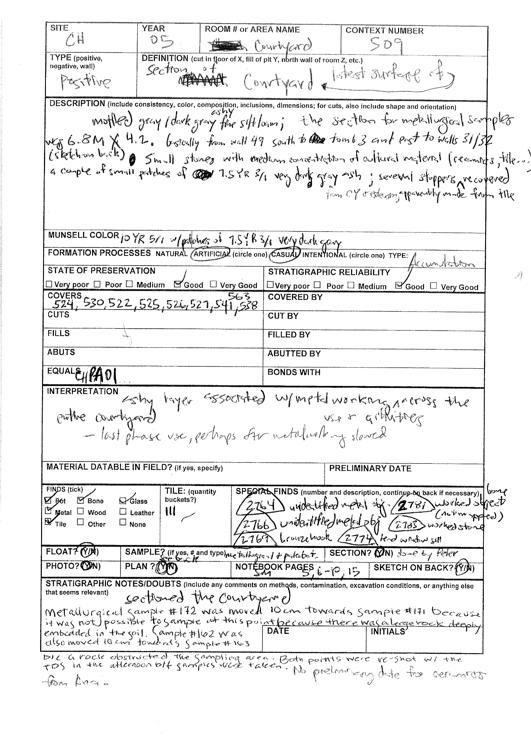 SITE YEAR ROOM # or AREA NAME CONTEXT NUMBER
CH 05 Courtyard 509
TYPE (positive, negative, wall) DEFINITION (cut in floor of X, fill of pit Y, north wall of room Z, etc.)
Positive section of Courtyard, latest surface of
DESCRIPTION (include consistency, color, composition, inclusions, dimensions; for cuts, also include shape and orientation)
mottled gray/dark gray ashy fine silt loam; the section for metallurgical samples
was 6.8M X 4.2. basically from wall 49 south to tomb 3 and east to walls 31/32
(sketch on back) Small stones with medium concentration of cultural material (ceramics, tile...)
a couple of small patches of 7.5 YR 3/1 very dark gray ash; several stoppers recovered
from apparently made from tile
MUNSELL COLOR 10 YR 5/1 w/patches of 7.5 YR 3/1 very dark gray
FORMATION PROCESSES NATURAL ARTIFICIAL (circle one) CASUAL INTENTIONAL (circle one) TYPE: Accumulation
STATE OF PRESERVATION STRATIGRAPHIC RELIABILITY
Very poor Poor Medium Good Very Good Very poor Poor Medium Good Very Good
COVERS 563 COVERED BY
524, 530, 522, 525, 526, 527, 541, 538
CUTS CUT BY
FILLS FILLED BY
ABUTS ABUTTED BY
EQUALS CHPA01 BONDS WITH
INTERPRETATION
ashy layer associated w/metal working across the
entire courtyard use or activities
- last phase use, perhaps after metalworking slowed
MATERIAL DATABLE IN FIELD? (if yes, specify) PRELIMINARY DATE
FINDS (tick) TILE: (quantity buckets?) SPECIAL FINDS (number and description, continue on back if necessary)
Pot Bone Glass III 2764 unidentified metal obj. 2781 worked bone object
Metal Wood Leather 2766 unidentified metal obj (not mapped) 2783 worked stone
Tile Other None 2769 bronze hook 2774 window sill
FLOAT? (Y/N) SAMPLE? (if yes, # and type) metallurgical SECTION? (Y/N) done by Peter
PHOTO? (Y/N) PLAN? (Y/N) NOTEBOOK PAGES 5, 6-10, 15 SKETCH ON BACK? (Y/N)
STRATIGRAPHIC NOTES/DOUBTS (include any comments on methods, contamination, excavation conditions, or anything else that seems relevant)
sectioned the courtyard
Metallurgical sample #172 was moved 10cm towards sample #171 because
it was not possible to sample at this point because there was a large rock deeply
embedded in the soil. Sample #162 was DATE INITIALS
also moved 10cm towards sample #163
b/c a rock obstructed the sampling area. Both points were re-shot w/ the
TDS in the afternoon b/f samples were taken. No preliminary date for ceramics
from Ana.